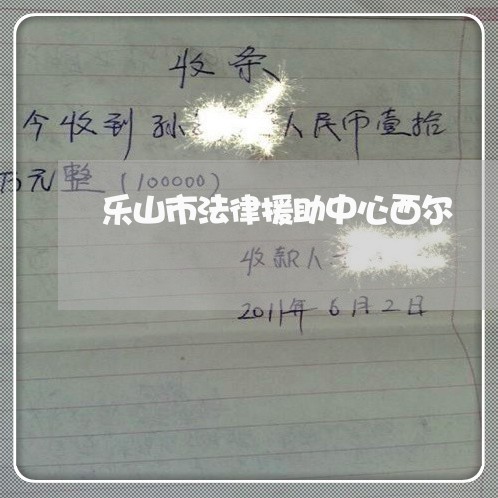 收条
今收到孙 人民币壹拾
万元整(100000)
乐山市法律援助中心西尔
收款人
2011年6月2日